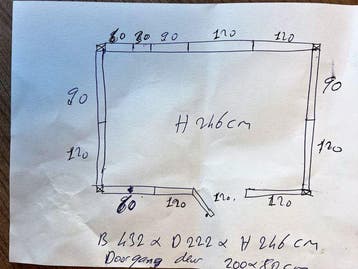 60 80 90 120 120
90 90
H 246 cm
120 120
60 120 120. 120
B 432 x D 222 x H 246 cm
Doorgang deur 200x80 cm